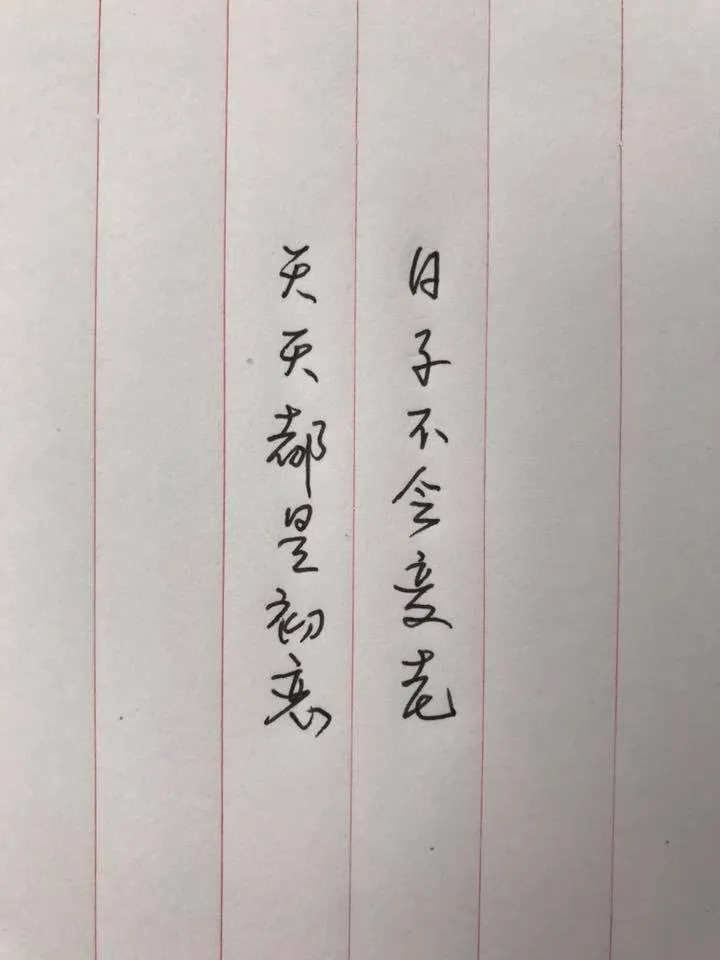 日子不会变老
天天都是初恋